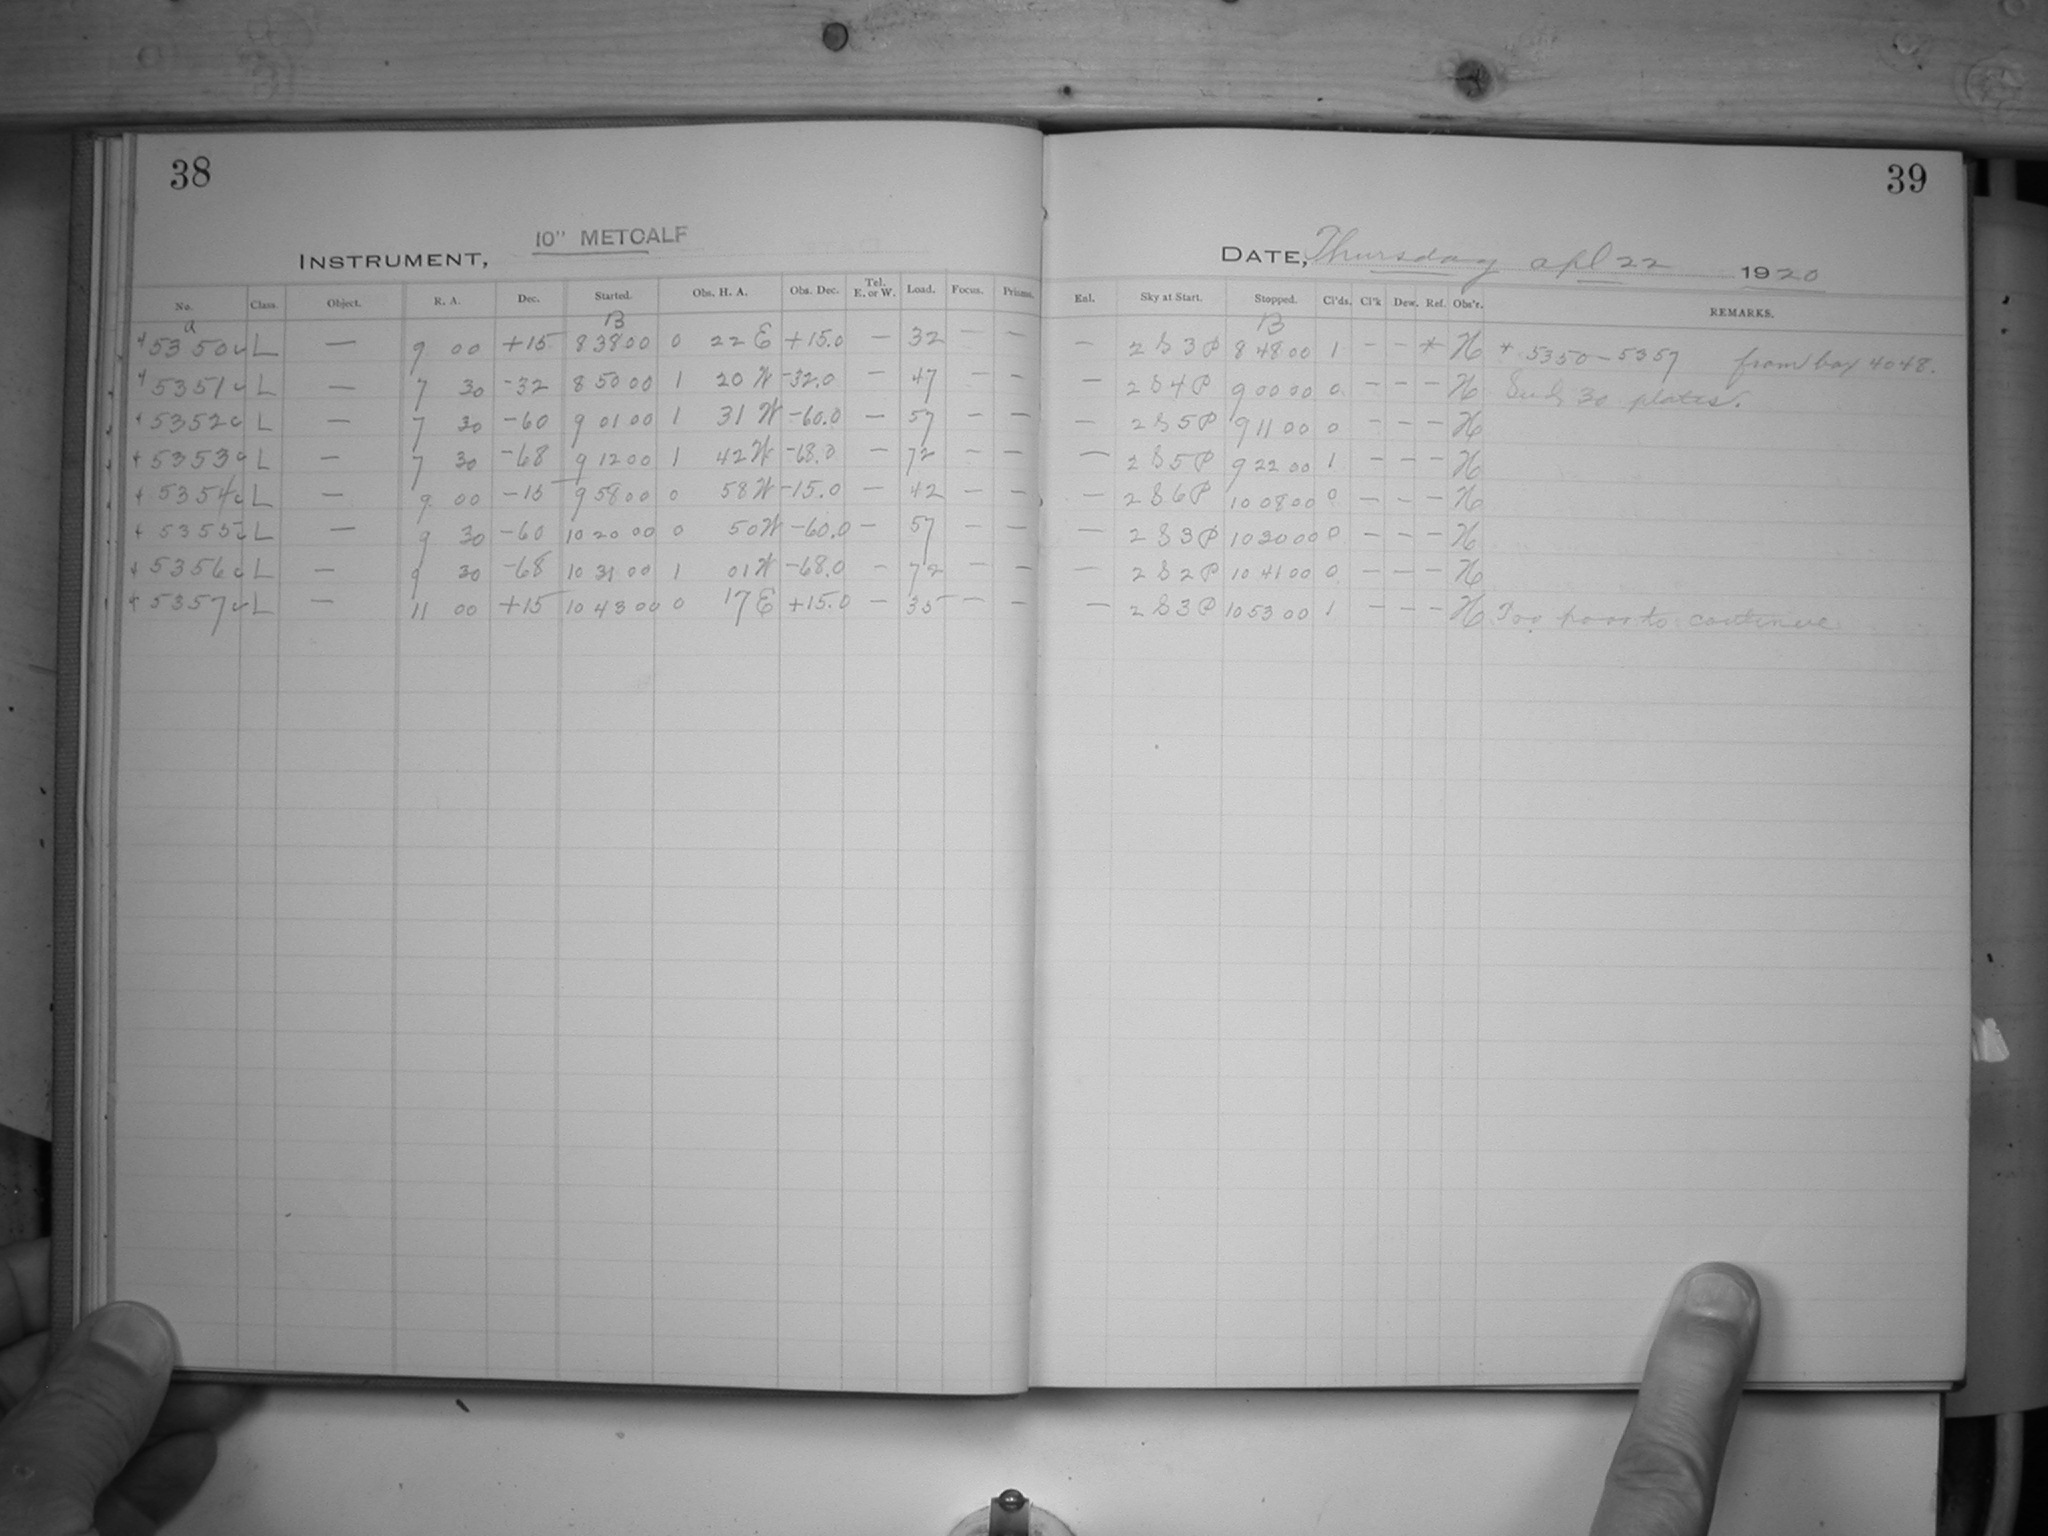 38
INSTRUMENT, 10" METCALF
No. Class. Object. R. A. Dec. Started. Obs. H. A. Obs. Dec. Tel. E. or W. Load. Focus. Prisms.
a B
+ 5350 L — 9 00 +15 8 38 00 0 22 E +15.0 — 32 — —
+ 5351 L — 7 30 -32 8 50 00 1 20 W -32.0 — 47 — —
+ 5352 L — 7 30 -60 9 01 00 1 31 W -60.0 — 57 — —
+ 5353 L — 7 30 -68 9 12 00 1 42 W -68.0 — 72 — —
+ 5354 L — 9 00 -15 9 58 00 0 58 W -15.0 — 42 — —
+ 5355 L — 9 30 -60 10 20 00 0 50 W -60.0 — 57 — —
+ 5356 L — 9 30 -68 10 31 00 1 01 W -68.0 — 72 — —
+ 5357 L — 11 00 +15 10 43 00 0 17 E +15.0 — 35 — —
39
DATE, Thursday Apl 22 1920
Enl. Sky at Start. Stopped. Cl'ds. Cl'k Dew. Ref. Obs'r. REMARKS.
B
— 2 S 3 P 8 48 00 1 — — * H + 5350 - 5357 from box 4048.
— 2 S 4 P 9 00 00 0 — — — H 30 plates.
— 2 S 5 P 9 11 00 0 — — — H
— 2 S 5 P 9 22 00 1 — — — H
— 2 S 6 P 10 08 00 0 — — — H
— 2 S 3 P 10 30 00 0 — — — H
— 2 S 2 P 10 41 00 0 — — — H
— 2 S 3 P 10 53 00 1 — — — H Too poor to continue